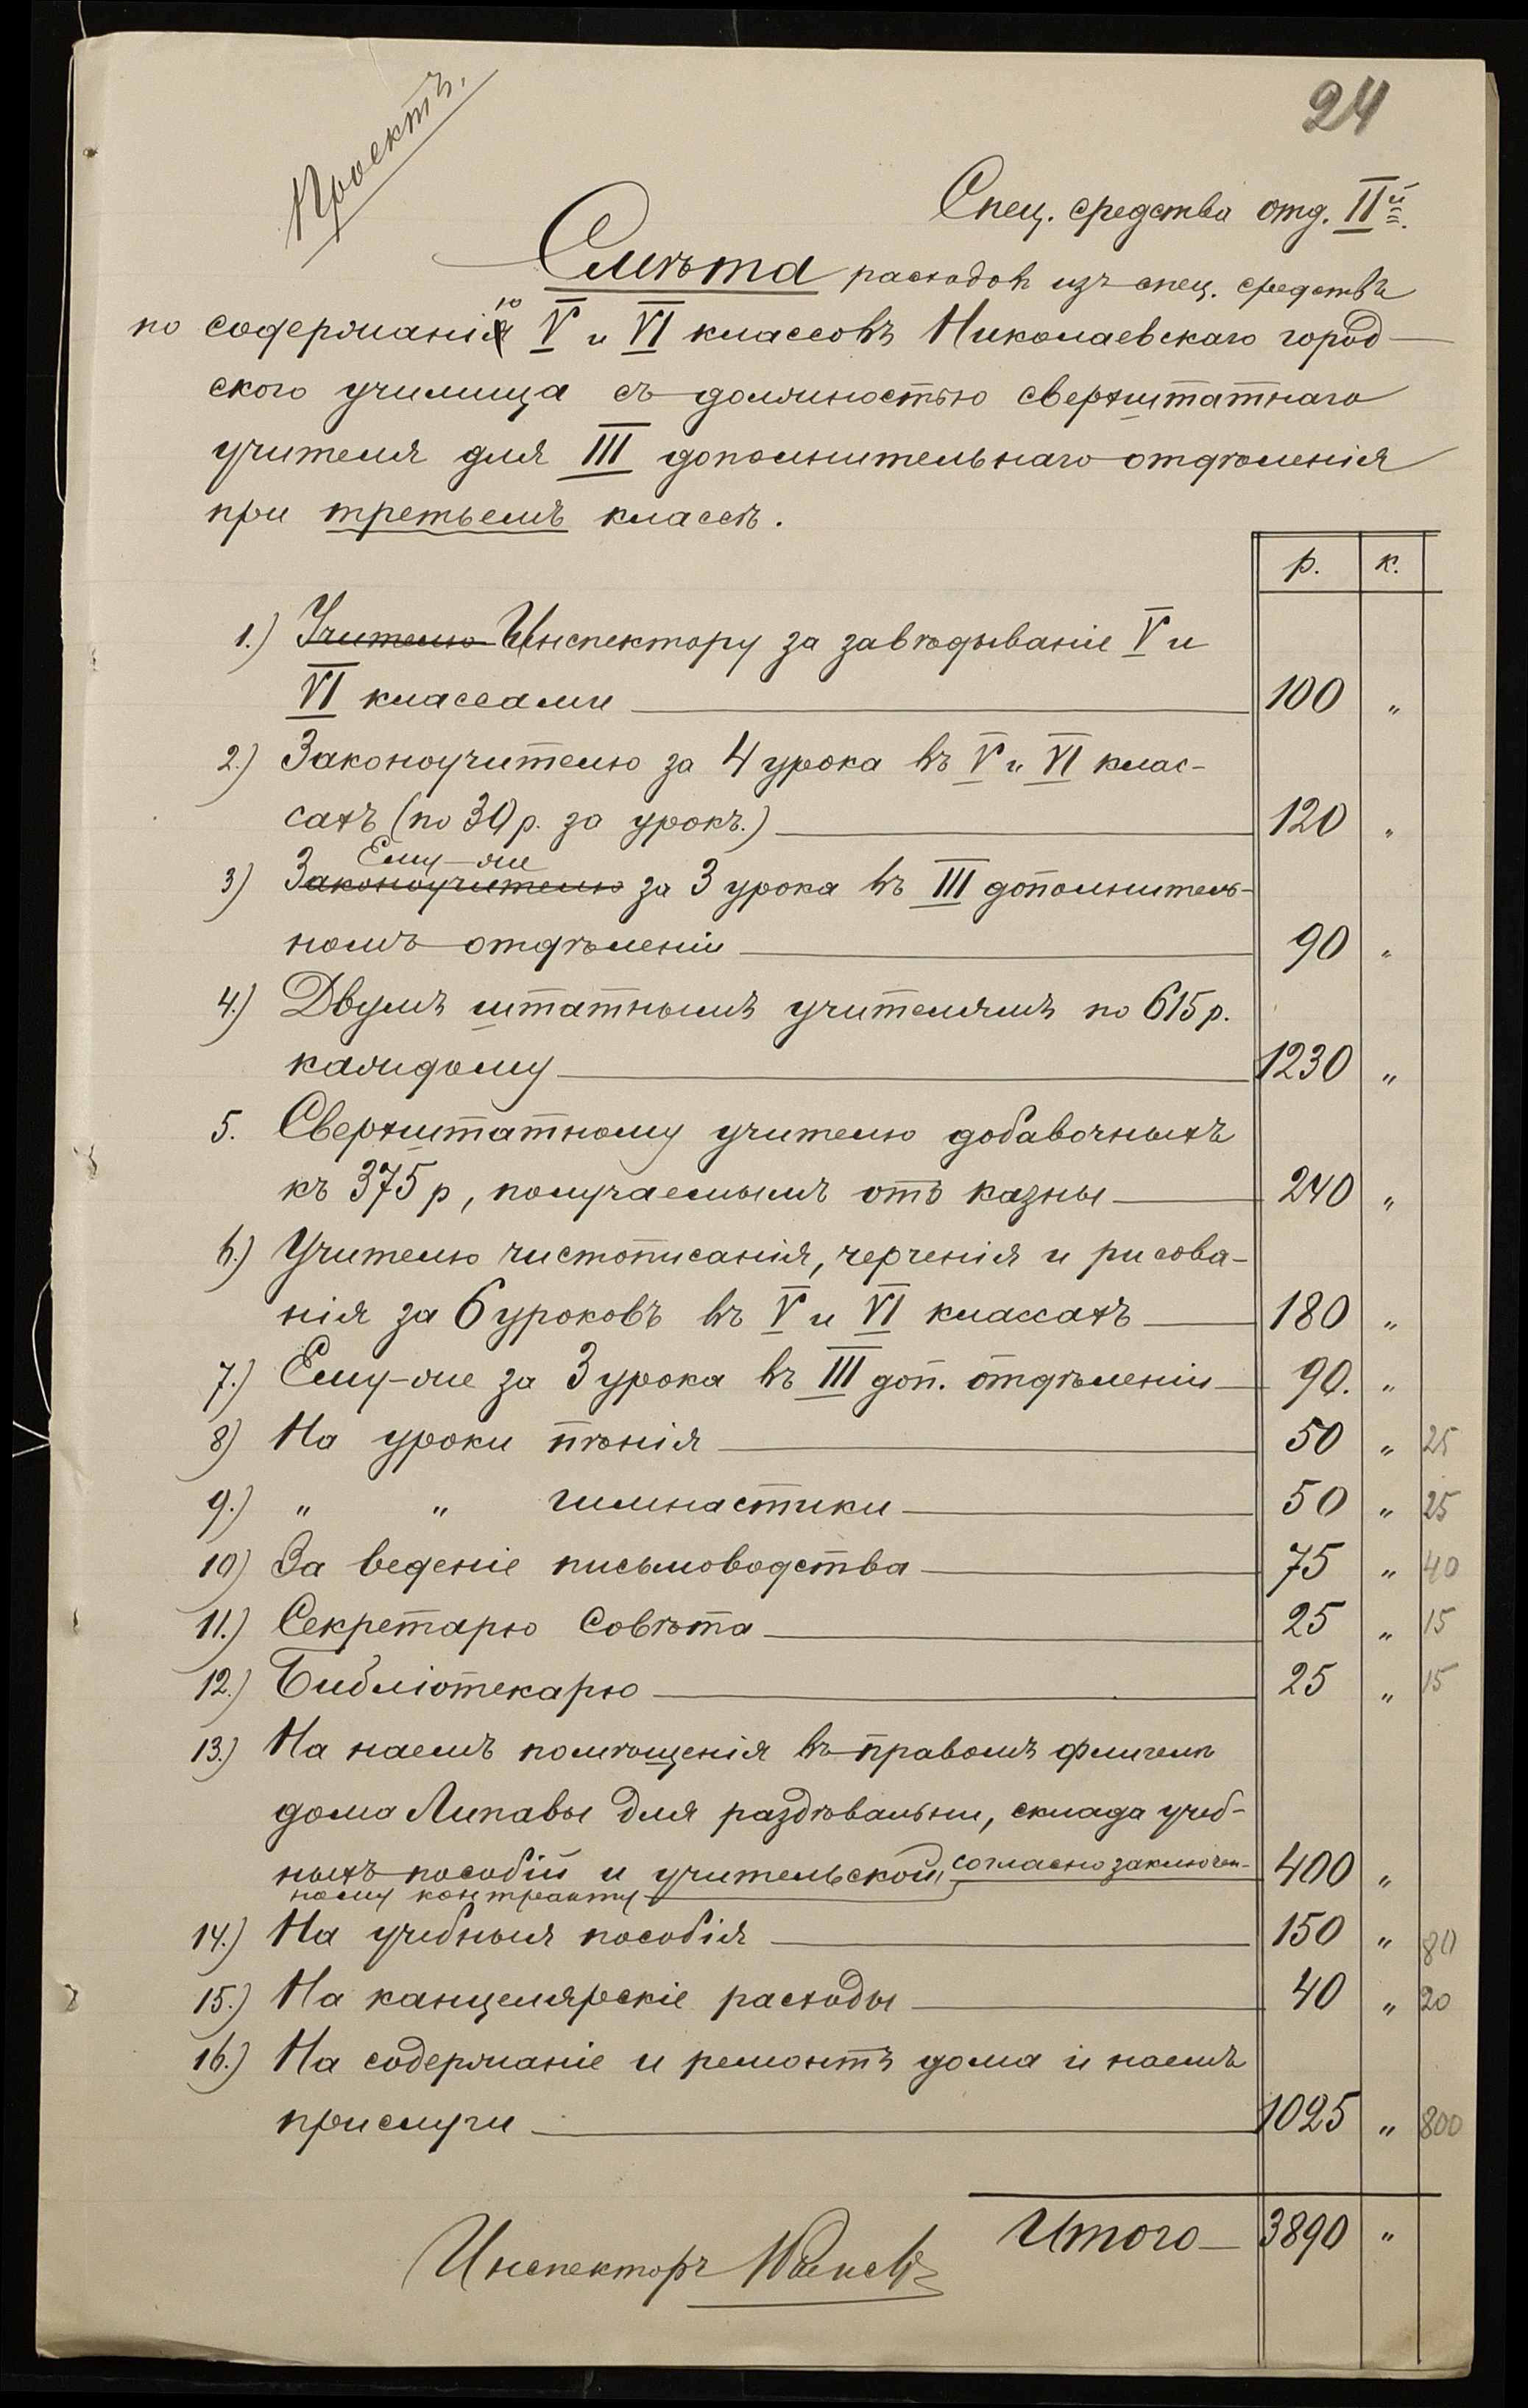 Проектъ.
24
Спец. средства отд. IIй.
Смѣта расходовъ изъ спец. средствъ
по содержанію V и VI классовъ Николаевскаго город-
ского училища съ должностью сверхштатнаго
учителя для III дополнительнаго отдѣленія
при третьемъ классѣ.
р. к.
1.) Учителю Инспектору за завѣдываніе V и
VI классами 100 „
2.) Законоучителю за 4 урока въ V и VI клас-
сахъ (по 30 р. за урокъ.) 120 „
Ему-же
3) Законоучителю за 3 урока въ III дополнитель-
номъ отдѣленіи 90 „
4.) Двумъ штатнымъ учителямъ по 615 р.
каждому 1230 „
5. Сверхштатному учителю добавочныхъ
къ 375 р, получаемымъ отъ казны 240 „
6.) Учителю чистописанія, черченія и рисова-
нія за 6 уроковъ въ V и VI классахъ 180 „
7.) Ему-же за 3 урока въ III доп. отдѣленіи 90. „
8) На уроки пѣнія 50 „ 25
9.) „ „ гимнастики 50 „ 25
10) За веденіе письмоводства 75 „ 40
11.) Секретарю Совѣта 25 „ 15
12.) Библіотекарю 25 „ 15
13.) На наемъ помѣщенія въ правомъ флигелѣ
дома Липавы для раздѣвальни, склада учеб-
ныхъ пособій и учительской, согласно заключен- 400 „
ному контракту
14.) На учебныя пособія 150 „ 80
15.) На канцелярскіе расходы 40 „ 20
16.) На содержаніе и ремонтъ дома и наемъ
прислуги 1025 „ 800
Итого 3890 „
Инспекторъ